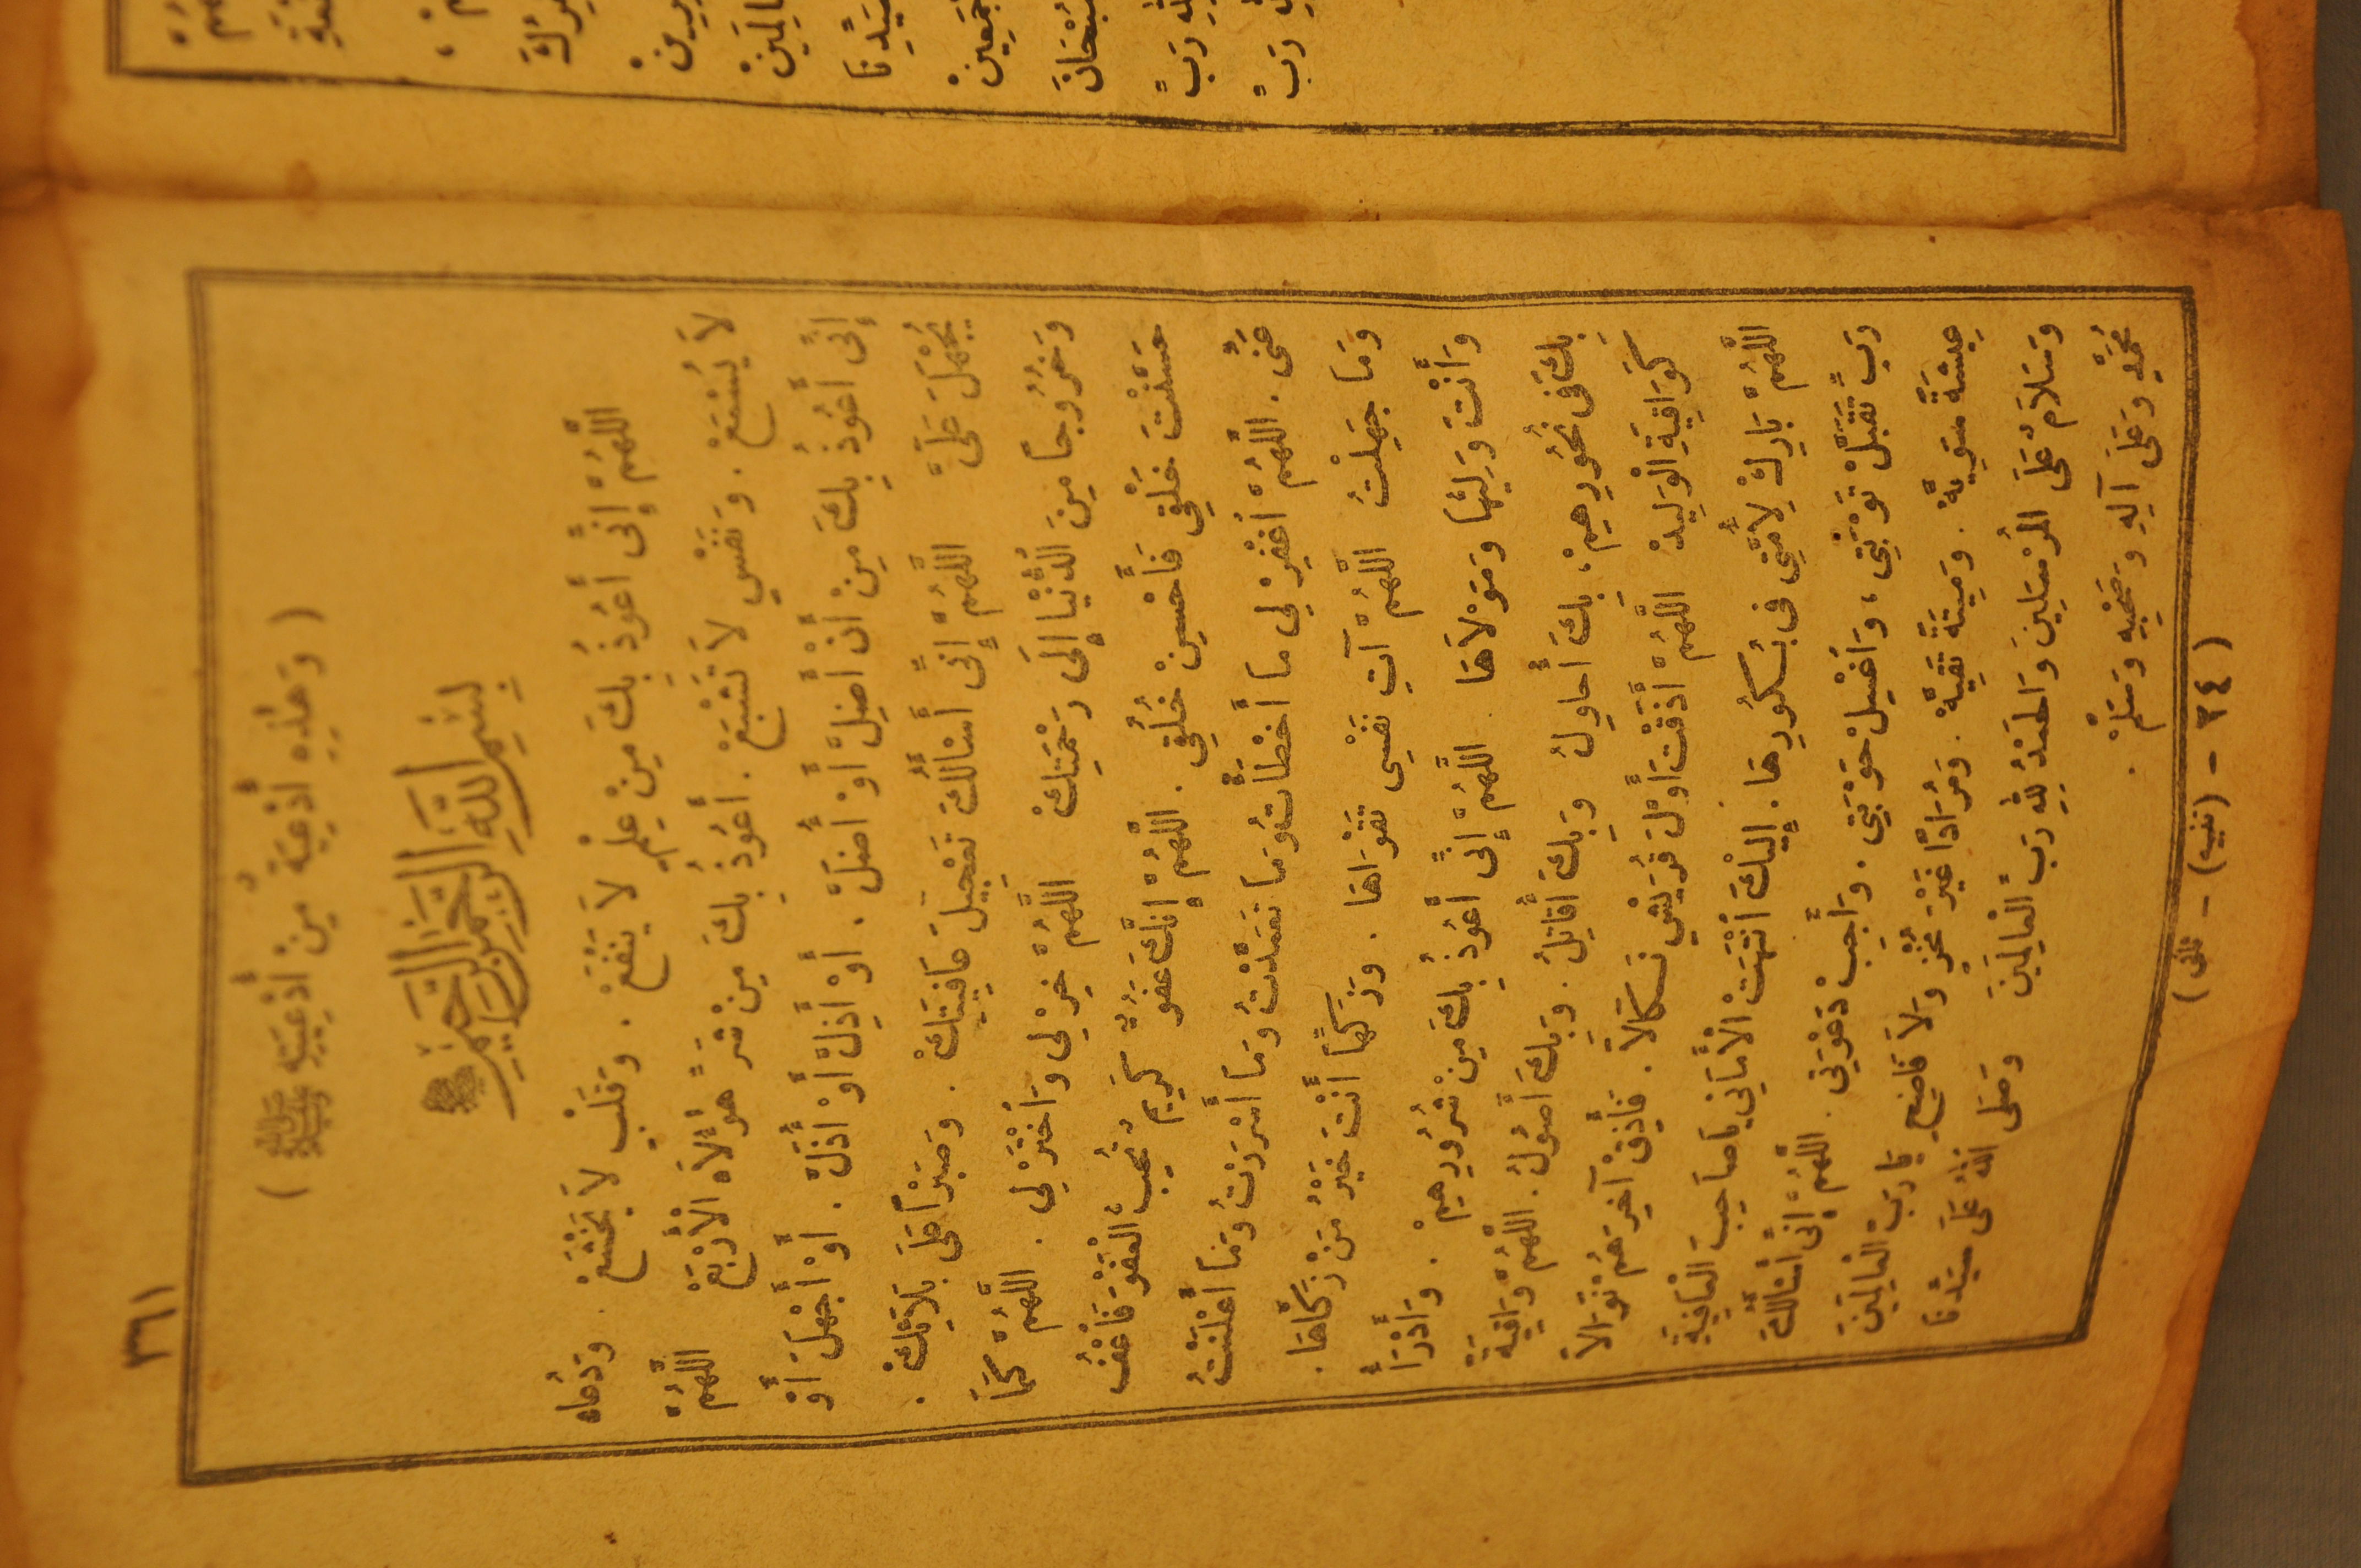 ٣٦١
( وَهٰذِهِ أَدْعِيَةٌ مِنْ أَدْعِيَتِهِ ﷺ )
بِسْمِ اللَّهِ الرَّحْمٰنِ الرَّحِيمِ
اللَّهُمَّ إِنِّى أَعُوذُ بِكَ مِنْ عِلْمٍ لَا يَنْفَعْ . وَقَلْبٍ لَا يَخْشَعْ . وَدُعَاءٍ
لَا يُسْمَعْ . وَنَفْسٍ لَا تَشْبَعْ . أَعُوذُ بِكَ مِنْ شَرِّ هٰؤُلَاءِ الْأَرْبَعْ اللَّهُمَّ
إِنِّى أَعُوذُ بِكَ مِنْ أَنْ أَضِلَّ أَوْ أُضَلَّ . أَوْ أَذِلَّ أَوْ أُذَلَّ . أَوْ أَجْهَلَ أَوْ
يُجْهَلَ عَلَىَّ اللَّهُمَّ إِنِّى أَسْأَلُكَ تَعْجِيلَ عَافِيَتِكْ . وَصَبْرًا عَلَى بَلَائِكْ .
وَخُرُوجًا مِنَ الدُّنْيَا إِلَى رَحْمَتِكْ اللَّهُمَّ خِرْ لِى وَاخْتَرْ لِى . اللَّهُمَّ كَمَا
حَسَّنْتَ خَلْقِى فَأَحْسِنْ خُلُقِى . اللَّهُمَّ إِنَّكَ عَفُوٌّ كَرِيمٌ تُحِبُّ الْعَفْوَ فَاعْفُ
عَنِّى . اللَّهُمَّ اغْفِرْ لِى مَا أَخْطَأْتُ وَمَا تَعَمَّدْتُ وَمَا أَسْرَرْتُ وَمَا أَعْلَنْتُ
وَمَا جَهِلْتُ اللَّهُمَّ آتِ نَفْسِى تَقْوَاهَا . وَزَكِّهَا أَنْتَ خَيْرُ مَنْ زَكَّاهَا .
وَأَنْتَ وَلِيُّهَا وَمَوْلَاهَا اللَّهُمَّ إِنِّى أَعُوذُ بِكَ مِنْ شُرُورِهِمْ . وَأَدْرَأُ
بِكَ فِى نُحُورِهِمْ ، بِكَ أُحَاوِلُ وَبِكَ أُقَاتِلُ . وَبِكَ أَصُولُ . اللَّهُمَّ وَاقِيَةً
كَوَاقِيَةِ الْوَلِيدْ اللَّهُمَّ أَذَقْتَ أَوَّلَ قُرَيْشٍ نَكَالًا . فَأَذِقْ آخِرَهُمْ نَوَالًا
اللَّهُمَّ بَارِكْ لِأُمَّتِى فِى بُكُورِهَا . إِلَيْكَ انْتَهَتِ الْأَمَانِى يَا صَاحِبَ الْعَافِيَةِ
رَبِّ تَقَبَّلْ تَوْبَتِى ، وَاغْسِلْ حَوْبَتِى . وَأَجِبْ دَعْوَتِى . اللَّهُمَّ إِنِّى أَسْأَلُكَ
عِيشَةً سَوِيَّةْ . وَمِيتَةً نَقِيَّةْ . وَمَرَدًّا غَيْرَ مُخْزٍ وَلَا فَاضِحٍ يَا رَبَّ الْعَالَمِينَ
وَسَلَامٌ عَلَى الْمُرْسَلِينَ وَالْحَمْدُ لِلّٰهِ رَبِّ الْعَالَمِينَ وَصَلَّى اللّٰهُ عَلَى سَيِّدِنَا
مُحَمَّدٍ وَعَلَى آلِهِ وَصَحْبِهِ وَسَلَّمْ .
( ٢٤ - ( تنبيه ) - ثانى )